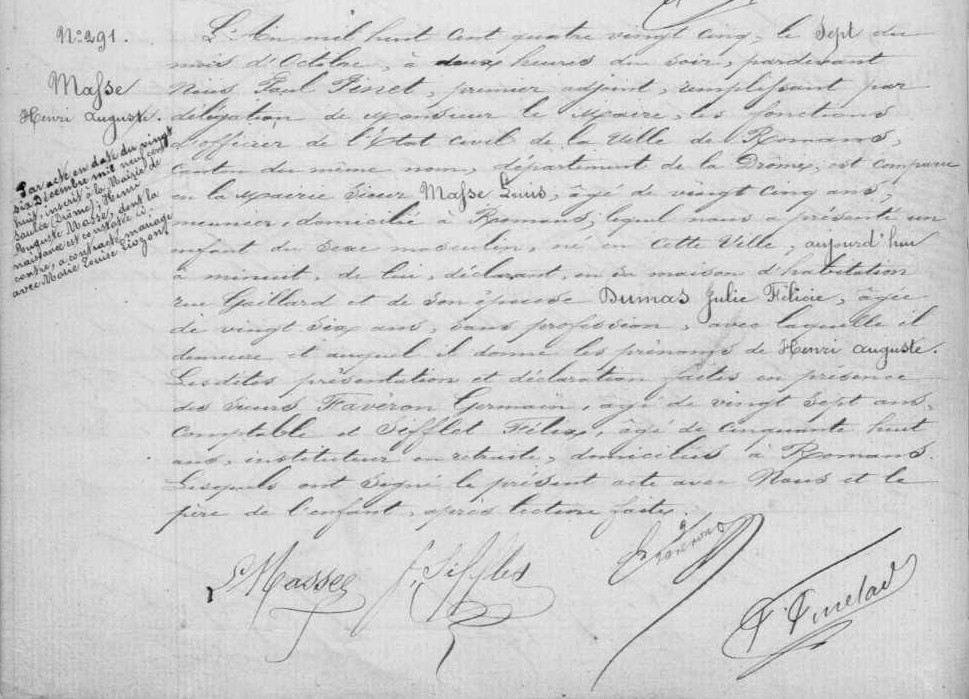 N° 291.
Masse
Henri Auguste.
Par acte en date du vingt
six Décembre mil neuf cent
huit, inscrit à la Mairie de
Saulce (Drôme), Henri
Auguste Masse, dont la
naissance est constatée ci-
contre, a contracté mariage
avec Marie Louise
L'An mil huit cent quatre vingt cinq, le Sept du
mois d'Octobre, à deux heures du soir, pardevant
Nous Paul Finet, premier adjoint, remplissant par
délégation de Monsieur le Maire, les fonctions
d'officier de l'Etat civil de la Ville de Romans,
Canton du même nom, département de la Drôme, est comparu
en la Mairie Sieur Masse Louis, âgé de vingt cinq ans,
meunier, domicilié à Romans, lequel nous a présenté un
enfant du Sexe masculin, né en cette Ville, aujourd'hui
à minuit, de lui, déclarant, en sa maison d'habitation
rue Gaillard et de son épouse Dumas Julie Félicie, âgée
de vingt Six ans, sans profession, avec laquelle il
demeure et auquel il donne les prénoms de Henri Auguste.
Lesdites présentation et déclaration faites en présence
des Sieurs Favéron Germain, âgé de vingt Sept ans,
Comptable et Sifflet Félix, âgé de cinquante huit
ans, instituteur en retraite, domiciliés à Romans.
Lesquels ont signé le présent acte avec Nous et le
père de l'enfant, après lecture faite.
Ls Masse F. Sifflet